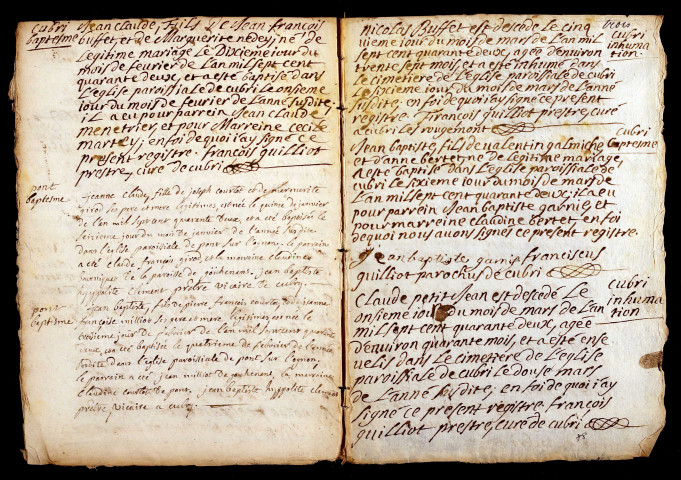 Cubri
baptesme
Jean Claude, fils de Jean françois
buffet, et de Marguerite nedey né de
Legitime mariage Le Dixieme jour du
mois de fevrier de L'an mil sept cent
quarante deux, et a esté baptisé dans
L'eglise paroissiale de cubri Le onsieme
jour du mois de fevrier de L'anné susdite
il a eu pour parrein Jean Claude
menetrier, et pour Marreine Cecile
martey; en foi de quoi j'ay signé ce
present registre. françois quilliot
prestre, curé de cubri
pont
baptesme
jeanne claude, fille de joseph courtot et de marguerite
girod ses pere et mere legitimes, est née le quinze de janvier
de l'an mil sept cent quarante deux, et a été baptisée le
seizieme jour du mois de janvier de l'année susdite
dans l'eglise paroissiale de pont sur l'ognon. le parrain
a été claude françois girod et la marraine claudine
de la paroisse de jean baptiste
hyppolite clement prêtre vicaire de cubry
pont
baptême
jean baptiste, fils de pierre françois courtot et de jeanne
françoise milliot ses pere et mere legitimes est né le
troisieme jour de fevrier de l'an mil sept cent quarante
deux, et a été baptisé le quatrieme de fevrier de l'année
susdite dans l'eglise paroissiale de pont sur l'ognon,
le parrain a été jean milliot de la marraine
claudine courtot de pont, jean baptiste hyppolite clement
prêtre vicaire a cubry
trois
Cubri
inhuma
tion
nicolas Buffet est decedé Le cinq
vieme jour du mois de mars de L'an mil
sept cent quarante deux, agée d'environ
trente sept mois, et a esté inhumé dans
Le cimetiere de L'eglise paroissiale de cubri
Le sixieme jour du mois de mars de L'anné
susdite; en foi de quoi j'ay signé ce present
registre. françois quilliot prestre, curé
a cubri Les rougemont
Cubri
baptesme
Jean baptiste, fils de valentin galmiche
et d'anne bertet, né de Legitime mariage,
a esté baptisé dans L'eglise paroissiale de
cubri Le sixieme jour du mois de mars de
L'an mil sept cent quarante deux, il a eu
pour parrein Jean baptiste et
pour marreine claudine bertet, en foi
de quoi nous avons signés ce present registre.
Jean baptiste franciscus
quilliot parochus de cubri
Cubri
inhuma
tion
Claude petit Jean est decedé Le
onsieme jour du mois de mars de L'an
mil sept cent quarante deux, agée
d'environ quarante mois, et a esté ense
velis dans Le cimetiere de L'eglise
paroissialle de cubri Le douse mars
de L'anné susdite; en foi de quoi j'ay
signé ce present registre. françois
quilliot prestre, curé de cubri